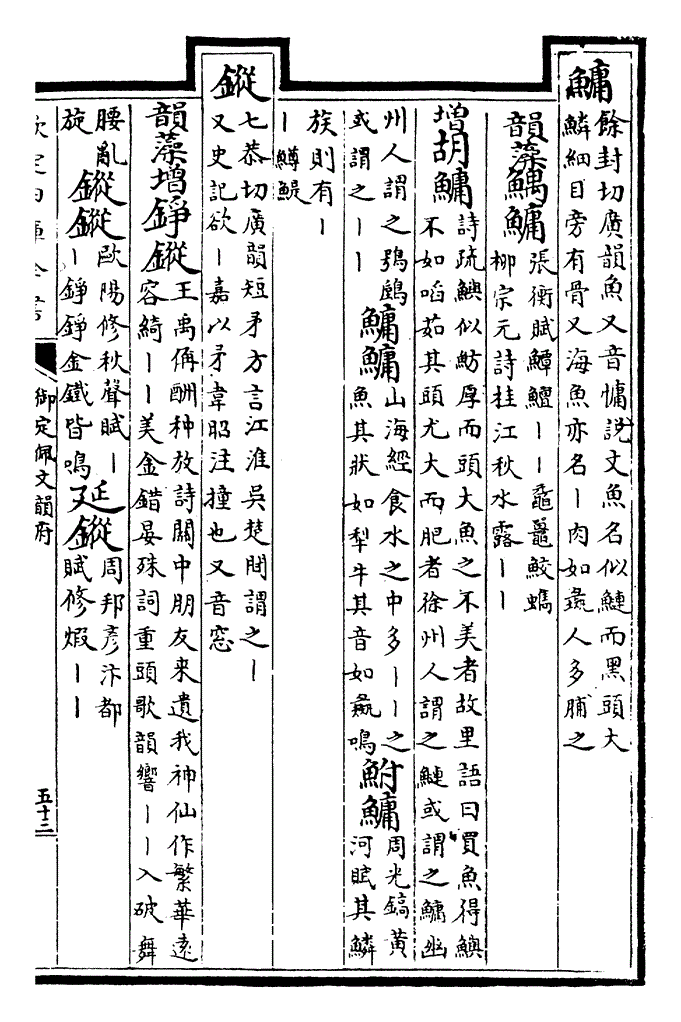 鱅
餘封切廣韻魚又音慵說文魚名似鰱而黑頭大
鱗細目旁有骨又海魚亦名丨肉如彘人多脯之
韻藻鰅鱅
張衡賦鱏鱣丨丨黿鼉鮫蠵
柳宗元詩桂江秋水露丨丨
增胡鱅
詩疏鱮似魴厚而頭大魚之不美者故里語曰買魚得鱮
不如啗茹其頭尤大而肥者徐州人謂之鰱或謂之鱅幽
州人謂之鴞鷉
或謂之丨丨
鱅鱅
山海經食水之中多丨丨之
魚其狀如犁牛其音如彘鳴
鮒鱅
周光鎬黄
河賦其鱗
族則有丨
丨鱒鯷
鏦
七恭切廣韻短矛方言江淮吳楚閒謂之丨
又史記欲丨嘉以矛韋昭注撞也又音窓
韻藻增錚鏦
王禹偁酬种放詩關中朋友来遺我神仙作繁華逺
容綺丨丨美金錯晏殊詞重頭歌韻響丨丨入破舞
腰亂
旋
鏦鏦
歐陽修秋聲賦丨
丨錚錚金鐵皆鳴
延鏦
周邦彦汴都
賦修煆丨丨
欽定四庫全書
御定佩文韻府
五十三